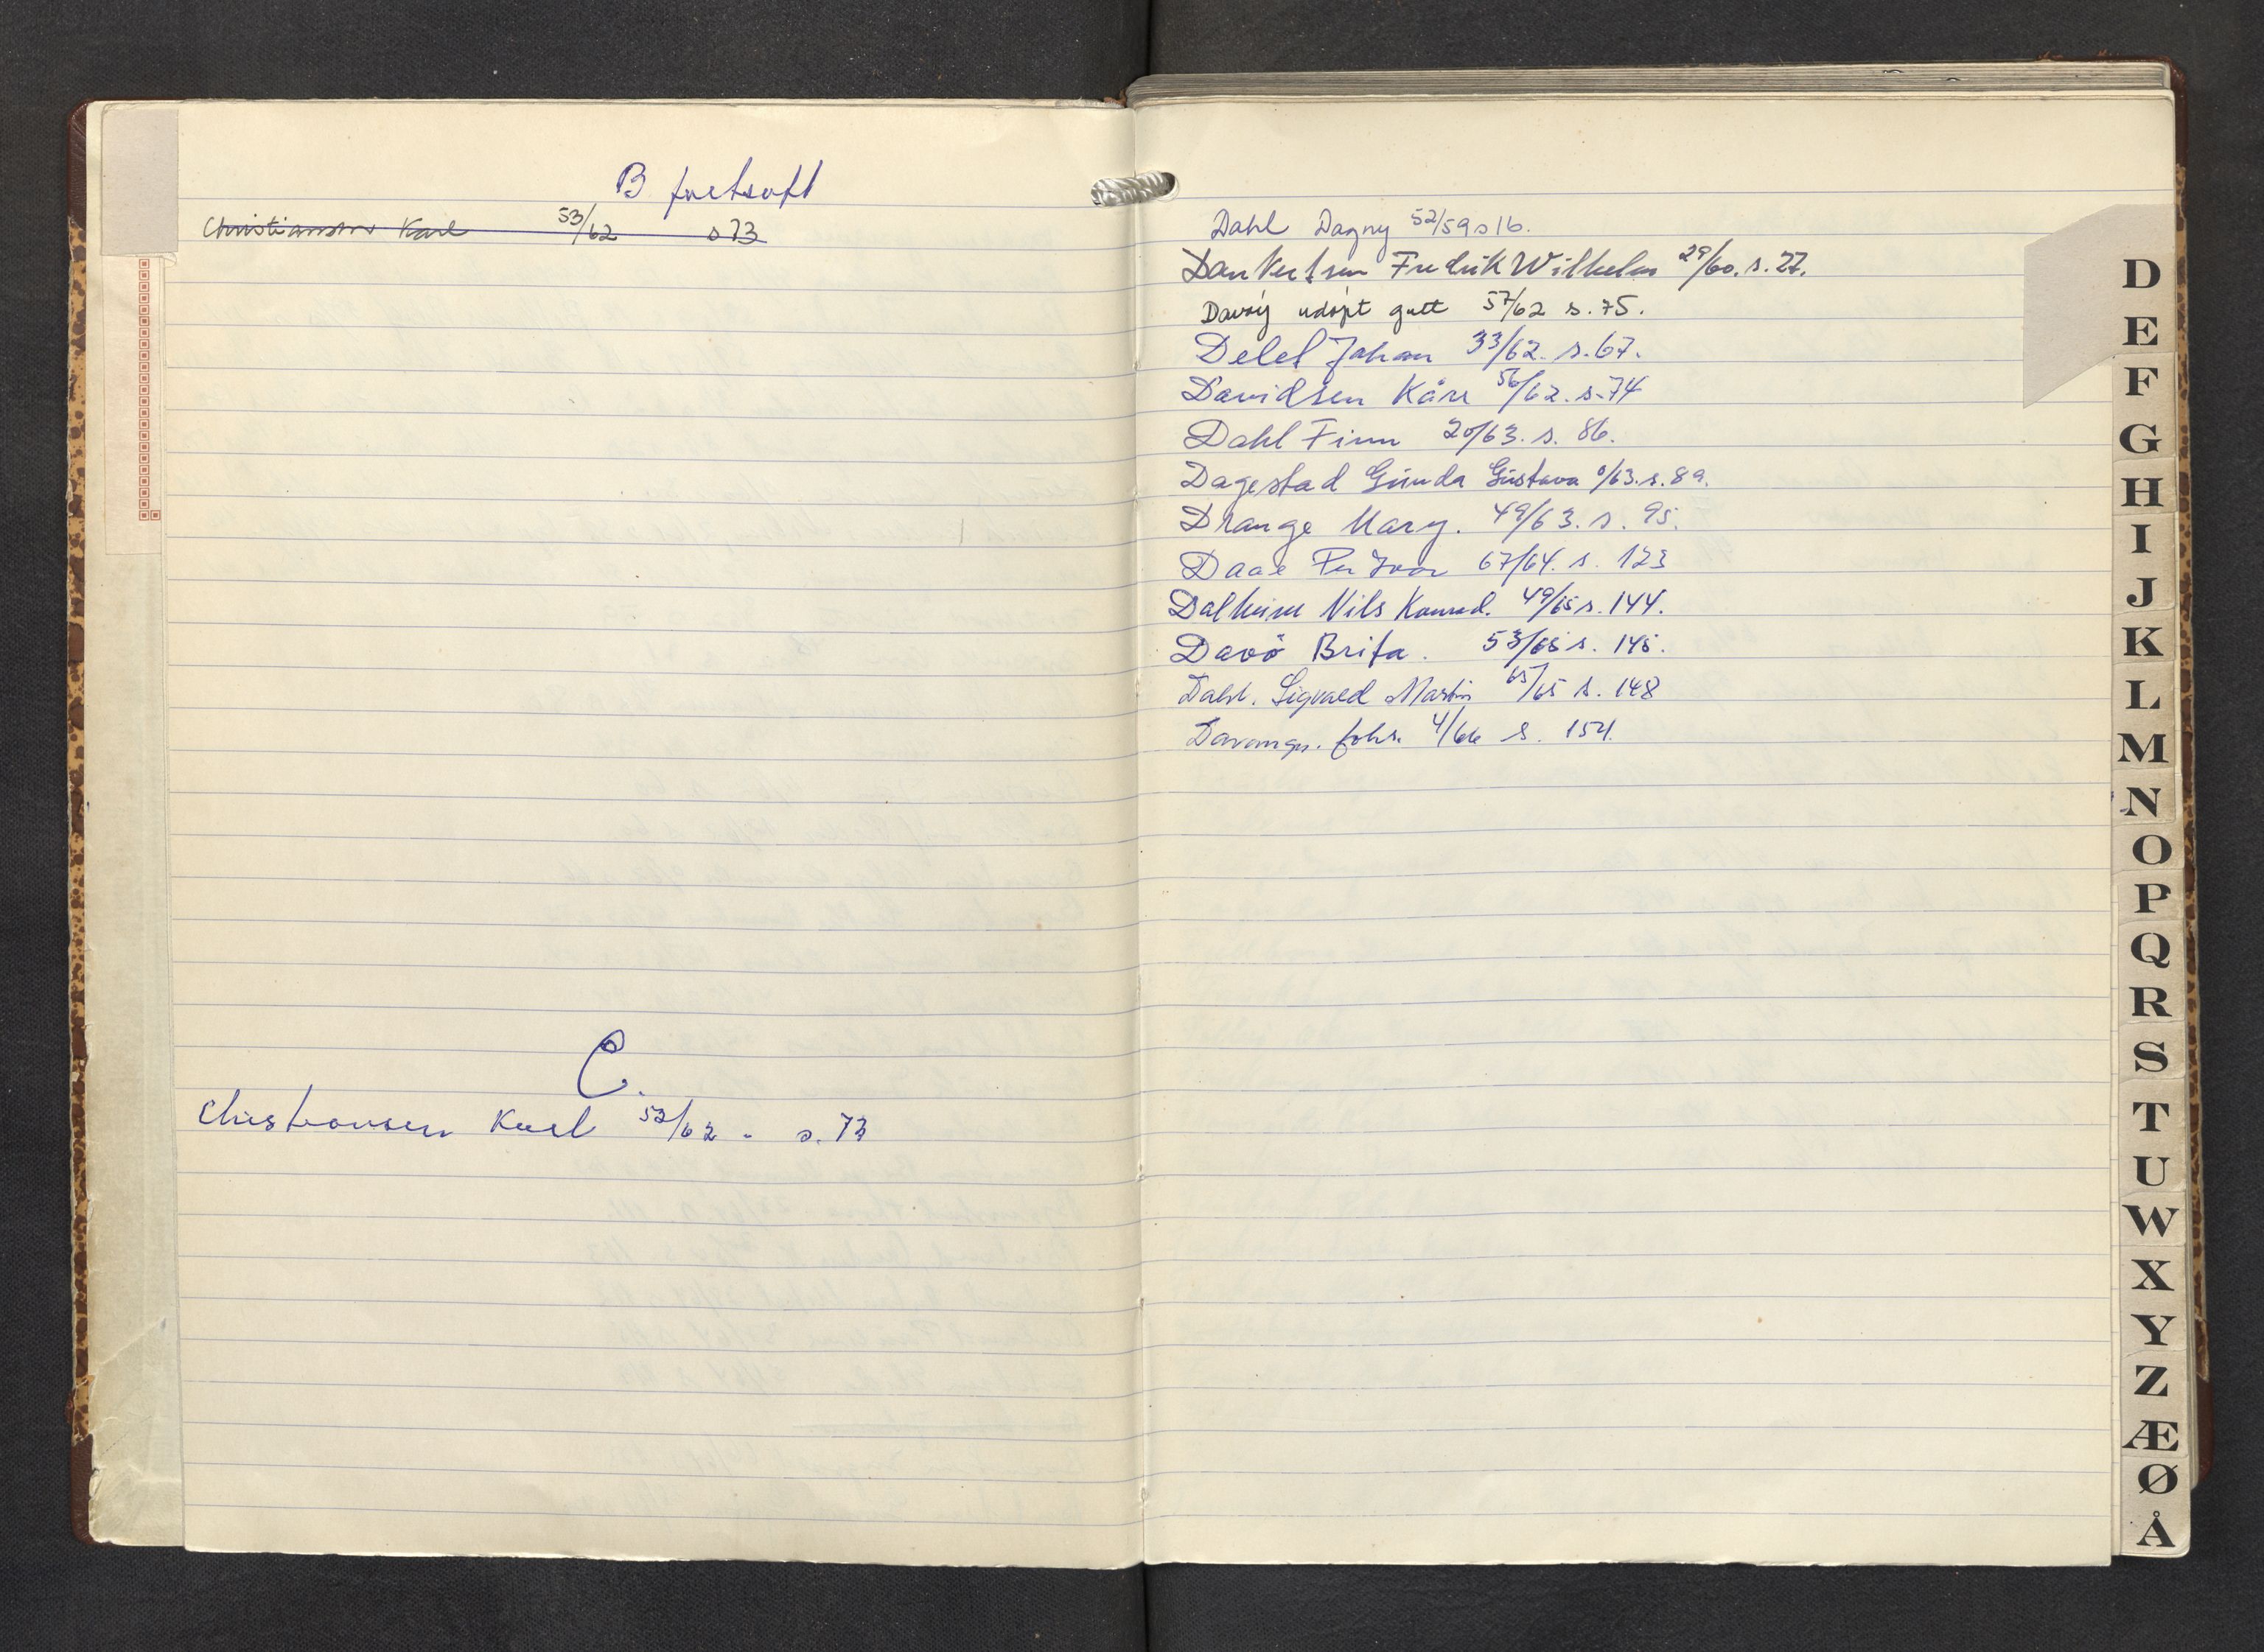 B fortsatt
Christiansen Karl 53/62 s 73
C.
Christiansen Karl 53/62 - s. 73
Dahl Dagny 52/59 s 16.
Dankertsen Fredrik Wilhelm 29/60. s. 27.
Davøy udøpt gutt 57/62 s. 75.
Johan 33/62. s. 67.
Davidsen Kåre 56/62. s. 74
Dahl Finn 20/63. s. 86.
Dagestad Gunda Gustava /63. s. 89.
Drange Mary. 49/63. s. 95.
Daae Per Ivar 67/64. s. 123
Dalheim Nils Konrad. 49/65 s. 144.
Davø Brita. 53/65 s. 145.
Dahl. Sigvald Martin 65/65 s. 148
4/66 s. 154.
D
E
F
G
H
I
J
K
L
M
N
O
P
Q
R
S
T
U
W
X
Y
Z
Æ
Ø
Å